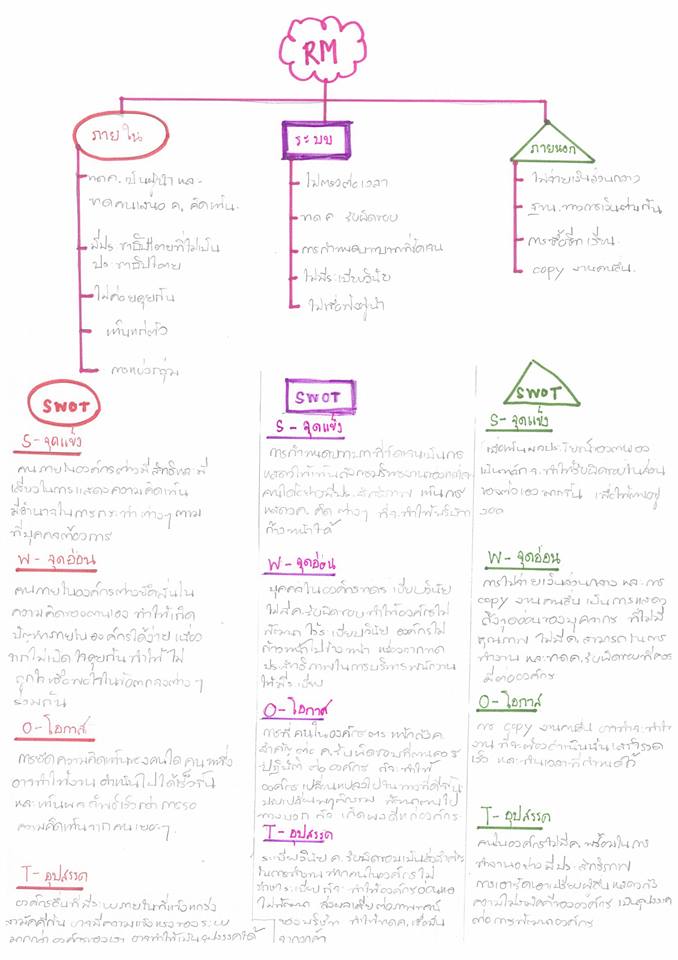 RM
ภายใน
ระบบ
ภายนอก
ขาดค. เป็นผู้นำ และ
ขาดคนเสนอ ค. คิดเห็น
มีประชาธิปไตยที่ไม่เป็น
ประชาธิปไตย
ไม่ค่อยคุยกัน
เห็นแก่ตัว
การแบ่งกลุ่ม
ไม่ตรงต่อเวลา
ขาด ค. รับผิดชอบ
การกำหนดบทบาทที่ชัดเจน
ไม่มีระเบียบวินัย
ไม่เชื่อฟังผู้นำ
ไม่จ่ายเงินส่วนกลาง
ฐานะทางการเงินต่างกัน
การซื้อชีทเรียน
copy งานคนอื่น
SWOT
S-จุดแข็ง
คนภายในองค์กรต่างมีสิทธิและมี
เสียงในการแสดงความคิดเห็น
มีอำนาจในการกระทำต่างๆ ตาม
ที่บุคคลต้องการ
W-จุดอ่อน
คนภายในองค์กรต่างยึดมั่นใน
ความคิดของตนเอง ทำให้เกิด
ปัญหาภายในองค์กรได้ง่าย เนื่อง
จากไม่เปิดใจคุยกัน ทำให้ไม่
ถูกใจหรือพอใจในข้อตกลงต่างๆ
ร่วมกัน
O-โอกาส
การยึดความคิดเห็นของคนใดคนหนึ่ง
อาจทำให้งานดำเนินไปได้เร็วขึ้น
และเห็นผลลัพธ์เร็วกว่าการรอ
ความคิดเห็นจากคนเยอะๆ
T-อุปสรรค
องค์กรอื่นที่มีระบบภายในที่แข็งแกร่ง
สามัคคีกัน อาจมีความแข็งแรงของระบบ
มากกว่าองค์กรของเรา อาจทำให้เป็นอุปสรรคได้
SWOT
S-จุดแข็ง
การกำหนดบทบาทที่ชัดเจนเป็นการ
แสดงให้เห็นถึงการบริหารงานของแต่ละ
คนได้อย่างมีประสิทธิภาพ เห็นการ
แสดงค. คิดต่างๆ ที่จะทำให้บริษัท
ก้าวหน้าได้
W-จุดอ่อน
บุคคลในองค์กรขาดระเบียบวินัย
ไม่มีค. รับผิดชอบ ทำให้องค์กรไม่
พัฒนา ไร้ระเบียบวินัย องค์กรไม่
ก้าวหน้าไปข้างหน้า เนื่องจากขาด
ประสิทธิภาพในการบริหารพนักงาน
ให้มีระเบียบ
O-โอกาส
การที่คนในองค์กรตระหนักถึงค.
สำคัญ และ ค. รับผิดชอบที่ตนควร
ปฏิบัติ ต่อองค์กร ก็จะทำให้
องค์กรเปลี่ยนแปลงไปในทางที่ดีขึ้น
ปรับเปลี่ยนพฤติกรรม พัฒนาตนไป
ทางบวก แล้วเกิดผลดีแก่องค์กร
T-อุปสรรค
ระเบียบวินัย ค. รับผิดชอบเป็นสิ่งสำคัญ
ในการทำงาน หากคนในองค์กรไม่
ระเบียบ ก็จะทำให้องค์กรอ่อนแอ
ไม่พัฒนา ส่งผลเสียต่อภาพลักษณ์
ของบริษัท ทำให้ขาดค. เชื่อมั่น
จากลูกค้า
SWOT
S-จุดแข็ง
เมื่อเห็นผลประโยชน์ของตนเอง
เป็นหลัก จะทำให้รับผิดชอบในส่วน
ของตัวเองมากขึ้น เพื่อให้ตนอยู่
รอด
W-จุดอ่อน
การไม่จ่ายเงินส่วนกลาง และการ
copy งานคนอื่น เป็นการแสดง
ถึงจุดอ่อนของบุคลากร ที่ไม่มี
คุณภาพ ไม่มีค. สามารถในการ
ทำงาน และขาดค. รับผิดชอบที่ควร
มีต่อองค์กร
O-โอกาส
การ copy งานคนอื่น อาจจะทำให้
งานที่จะต้องดำเนินนั้นเสร็จรวด
เร็ว และทันเวลาที่กำหนดไว้
T-อุปสรรค
คนในองค์กรไม่มีค. พร้อมในการ
ทำงานอย่างมีประสิทธิภาพ
การเอารัดเอาเปรียบผู้อื่น แสดงถึง
ความไม่สามัคคีขององค์กร เป็นอุปสรรค
ต่อการพัฒนาองค์กร